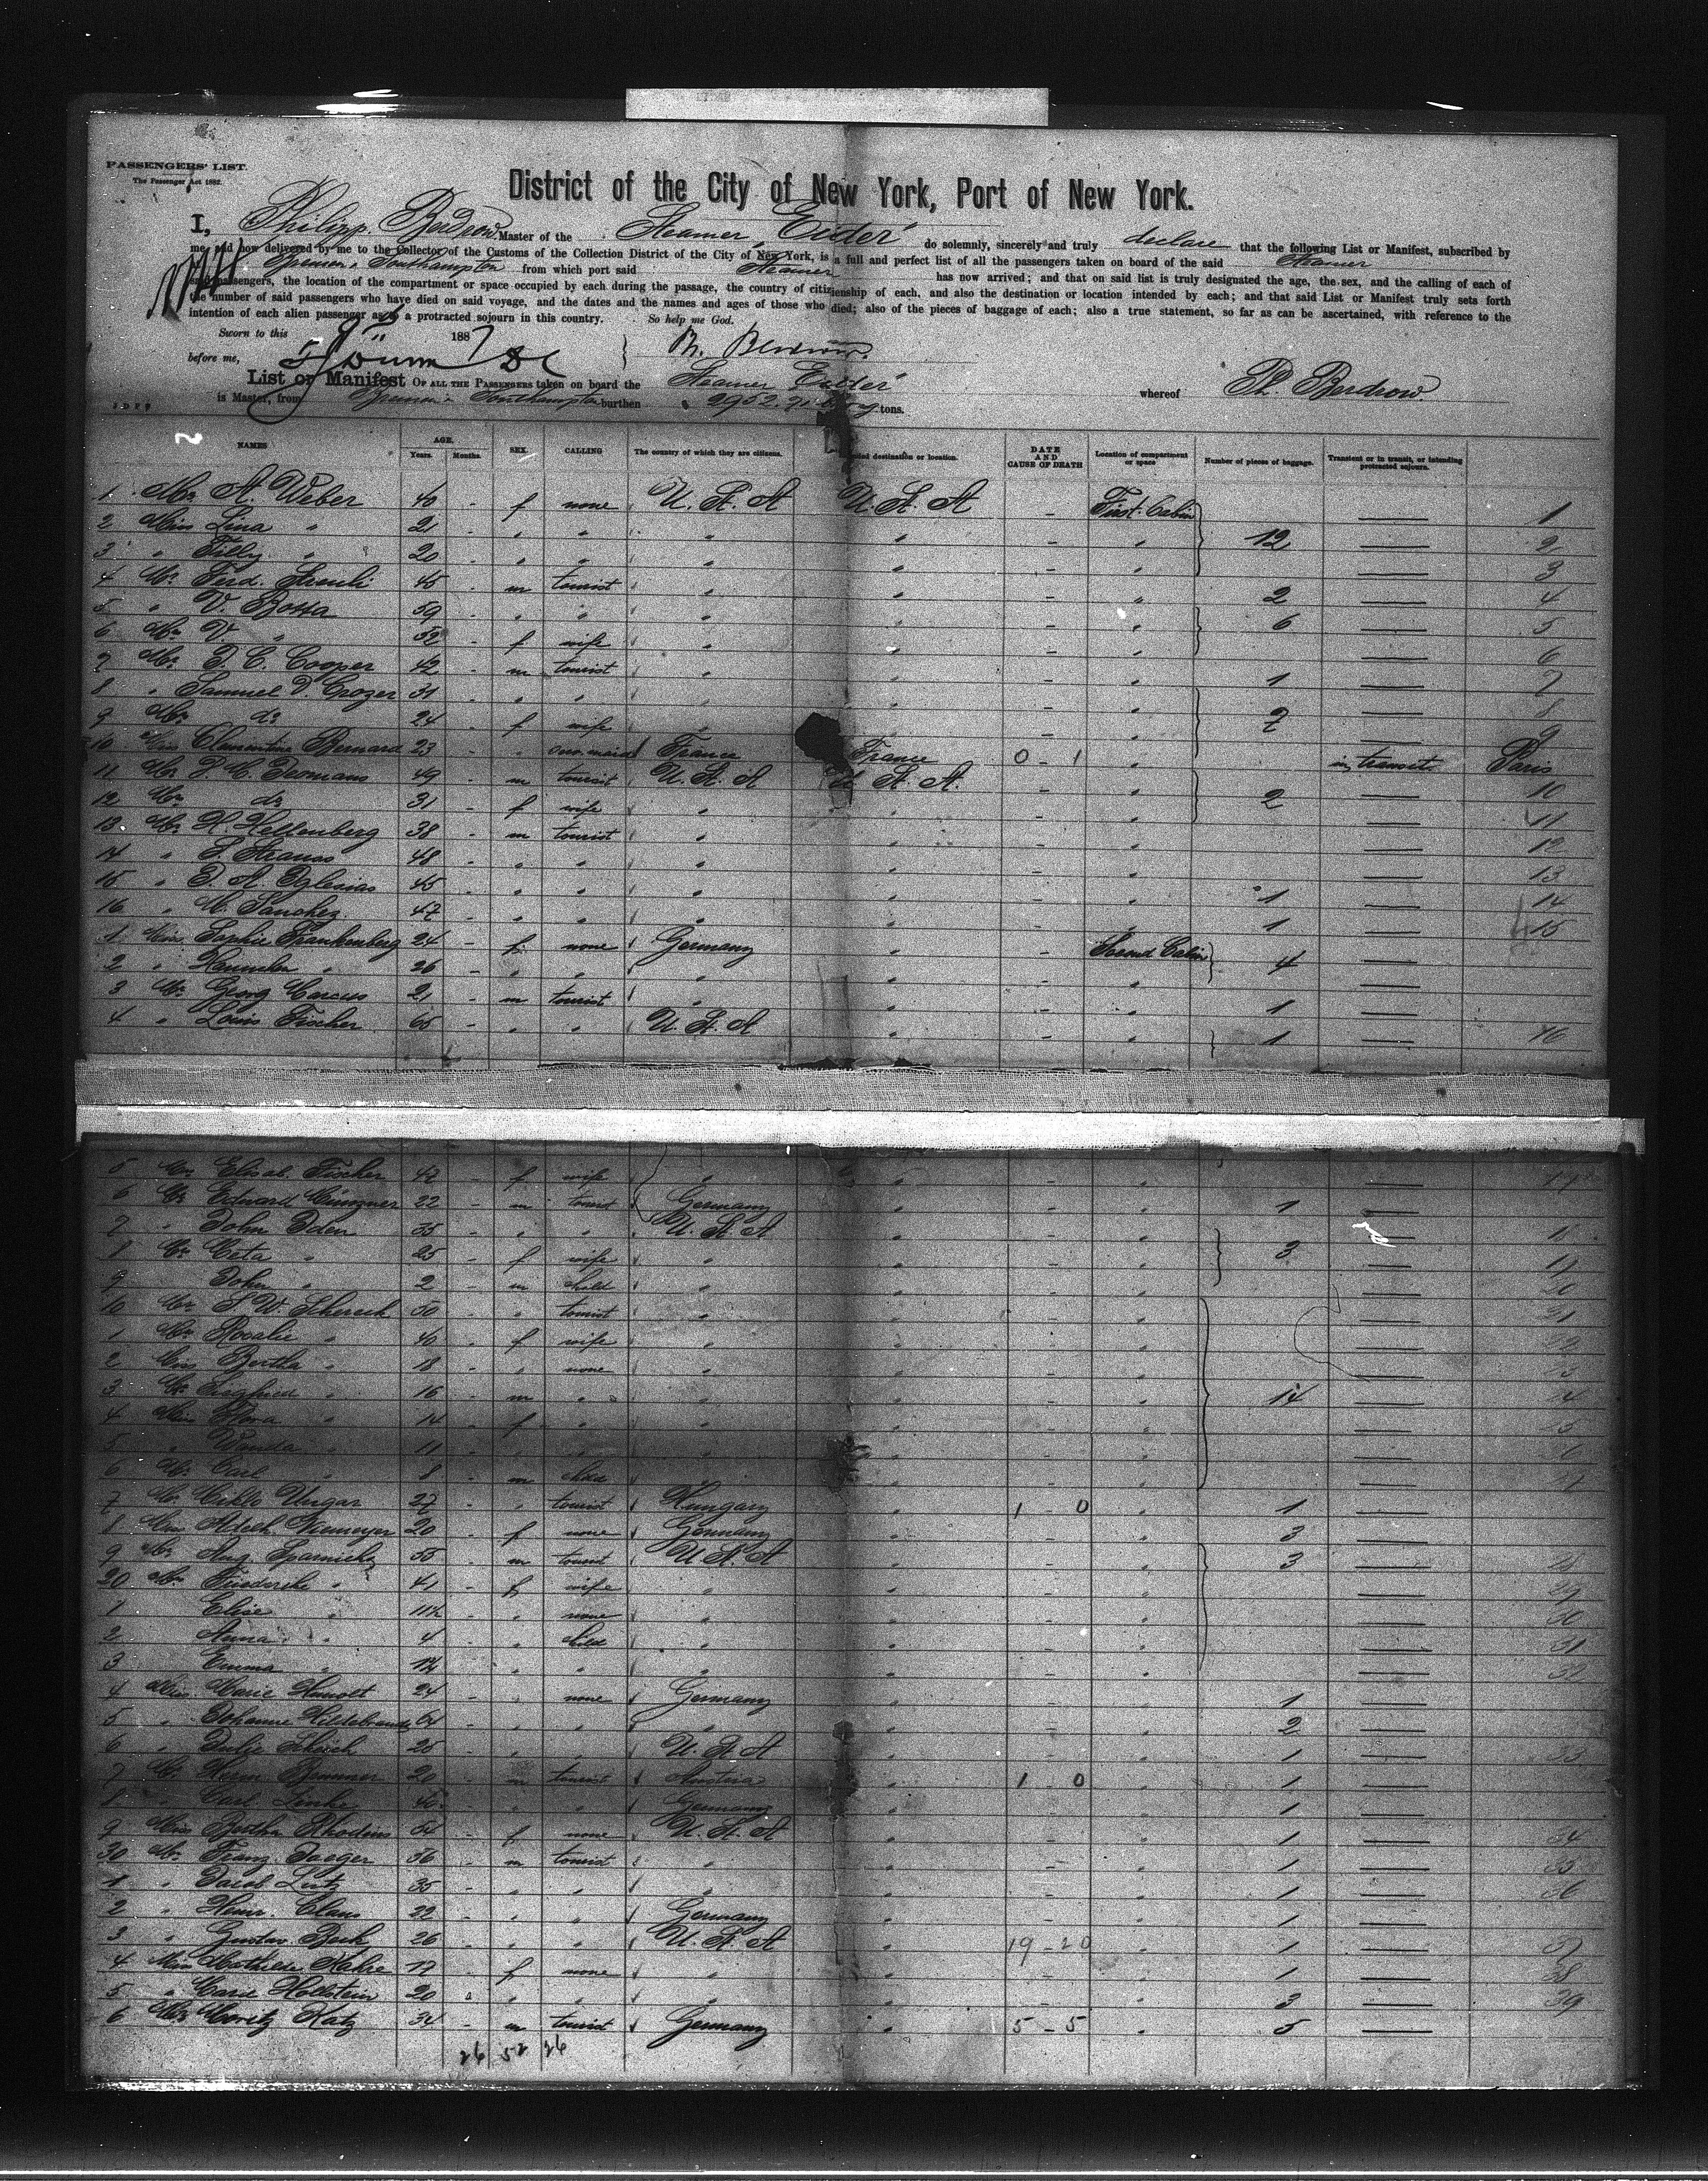 PASSENGERS' LIST.
The Passenger Act 1882.
District of the City of New York, Port of New York.
I, Philipp Berdrow Master of the Steamer "Eider" do solemnly, sincerely and truly declare that the following List or Manifest, subscribed by
me and now delivered by me to the Collector of the Customs of the Collection District of the City of New York, is a full and perfect list of all the passengers taken on board of the said Steamer
Bremen & Southampton from which port said Steamer has now arrived; and that on said list is truly designated the age, the sex, and the calling of each of
said passengers, the location of the compartment or space occupied by each during the passage, the country of citizenship of each, and also the destination or location intended by each; and that said List or Manifest truly sets forth
the number of said passengers who have died on said voyage, and the dates and the names and ages of those who died; also of the pieces of baggage of each; also a true statement, so far as can be ascertained, with reference to the
intention of each alien passenger as to a protracted sojourn in this country. So help me God.
Sworn to this 9th 1887
before me, Ph. Berdrow
List or Manifest OF ALL THE PASSENGERS taken on board the Steamer "Eider" whereof Ph. Berdrow
is Master, from Bremen & Southampton burthen 2952 tons.
NAMES AGE. Years. Months. SEX. CALLING The country of which they are citizens. destination or location. DATE AND CAUSE OF DEATH Location of compartment or space Number of pieces of baggage. Transient or in transit, or intending protracted sojourn.
1 Mrs A. Weber 40 - f none U. St. A U. St. A - First Cabin 1
2 Miss Lina " 21 - " " " " - " 12 2
3 " Tilly " 20 - " " " " - " 3
4 Mr Ferd. 45 - m tourist " " - " 2 4
5 " V. Botta 59 - " " " " - " 6 5
6 Mrs V. " 52 - f wife " " - " 6
7 Mr T. C. Cooper 42 - m tourist " " - " 1 7
8 " Samuel D. Crozer 31 - " " " " - " 7 8
9 Mrs do 24 - f wife " " - " 9
10 Miss Clementine Bernard 23 - " France France 0 - 1 " in transit Paris
11 Mr Yeomans 49 - m tourist U. St. A U. St. A. - " 2 10
12 Mrs do 31 - f wife " " - " 11
13 Mr H. Kellenberg 38 - m tourist " " - " 12
14 " S. Strauss 48 - " " " " - " 13
15 " Iglesias 45 - " " " " - " 1 14
16 " M. Sanchez 47 - " " " " - " 1 15
1 Miss Sophie Frankenberg 24 - f none Germany " - Second Cabin 4
2 " Hannchen " 26 - " " " " - "
3 Mr Georg Marcus 21 - m tourist " " - " 1
4 " Louis Fischer 65 - " " U. St. A " - " 1 16
5 Mrs Elisab. Fischer 42 - f wife " " - " 17
6 Mr Edward 22 - m tourist Germany " - " 1
7 " John Iden 35 - " " U. St. A " - " 3 18
8 Mrs Meta " 25 - f wife " " - " 19
9 John " 2 - m child " " - " 20
10 Mr S. W. Schereck 50 - " tourist " " - " 21
1 Mrs Rosalie " 40 - f wife " " - " 22
2 Miss Bertha " 18 - " none " " - " 23
3 Mr Siegfried " 16 - m " " " - " 14 24
4 Miss Flora " 14 - f " " " - " 25
5 " Wanda " 11 - " " " " - " 26
6 Mr Carl " 8 - m child " " - " 27
7 Mr Miklo Ungar 27 - " tourist Hungary " 1 - 0 " 1
8 Miss Adelh. Niemeyer 20 - f none Germany " - " 3
9 Mr Aug. 55 - m tourist U. St. A " - " 3 28
20 Mrs Friederike " 41 - f wife " " - " 29
1 Elise " 11½ - " none " " - " 30
2 Anna " 4 - " child " " - " 31
3 Emma " - " " " " - " 32
4 Miss Marie 24 - " none Germany " - " 1
5 " Johanne Hildebrandt 64 - " " " " - " 2
6 " Julie 25 - " " U. St. A " - " 1 33
7 Mr Herm. Brunner 20 - m tourist Austria " 1 - 0 " 1
8 " Carl Linke - " " Germany " - " 1
9 Miss Bertha Rhodius 54 - f none U. St. A " - " 1 34
30 Mr Franz Jaeger 36 - m tourist " " - " 1 35
1 " Jacob 35 - " " " " - " 1 36
2 " Heinr. Claus 22 - " " Germany " - " 1
3 " Gustav Beck 26 - " " U. St. A " 19 - 20 " 1 37
4 Miss Mathilde Kahre 17 - f none " " - " 1 38
5 " Holtstein 20 " " " " " - " 3 39
6 Mr Moritz Katz 34 - m tourist Germany " 5 - 5 " 5
26 52 26